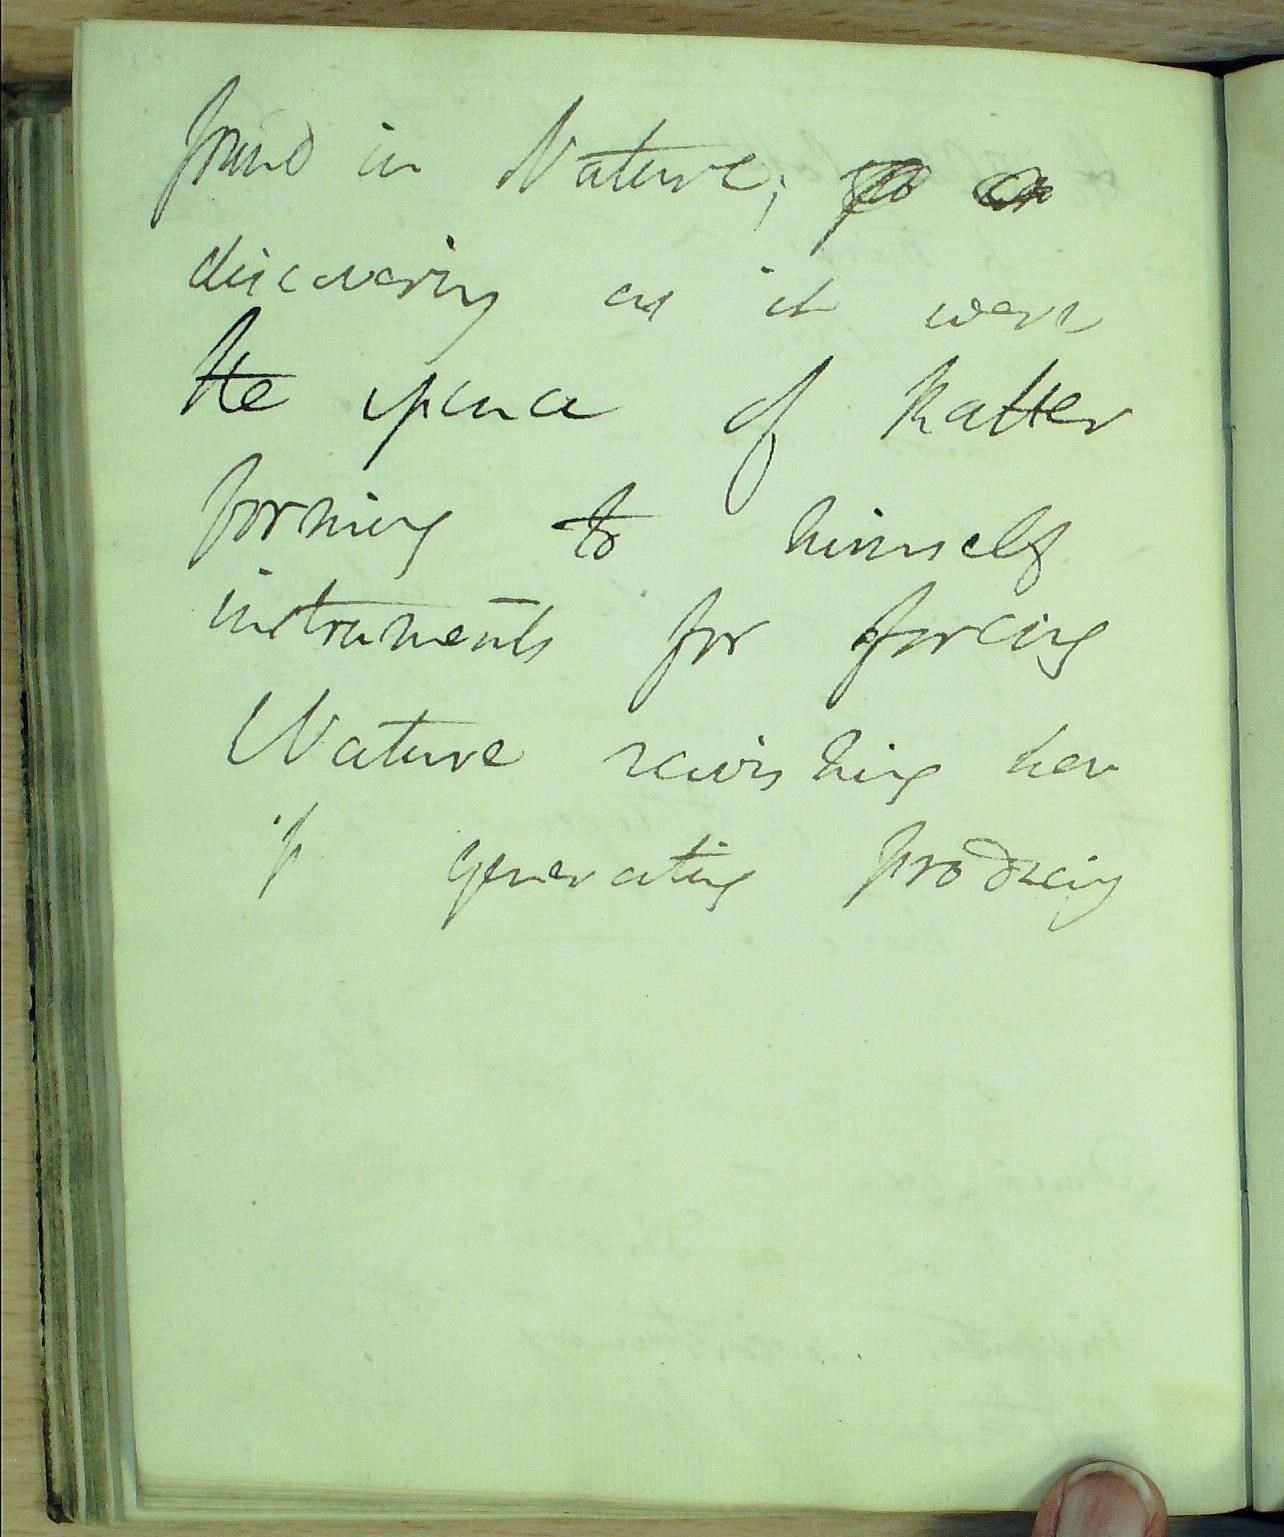 found in Nature;
discovering as it were
the essence of Matter
forming to himself
instruments for forcing
Nature ravishing her
if generating producing